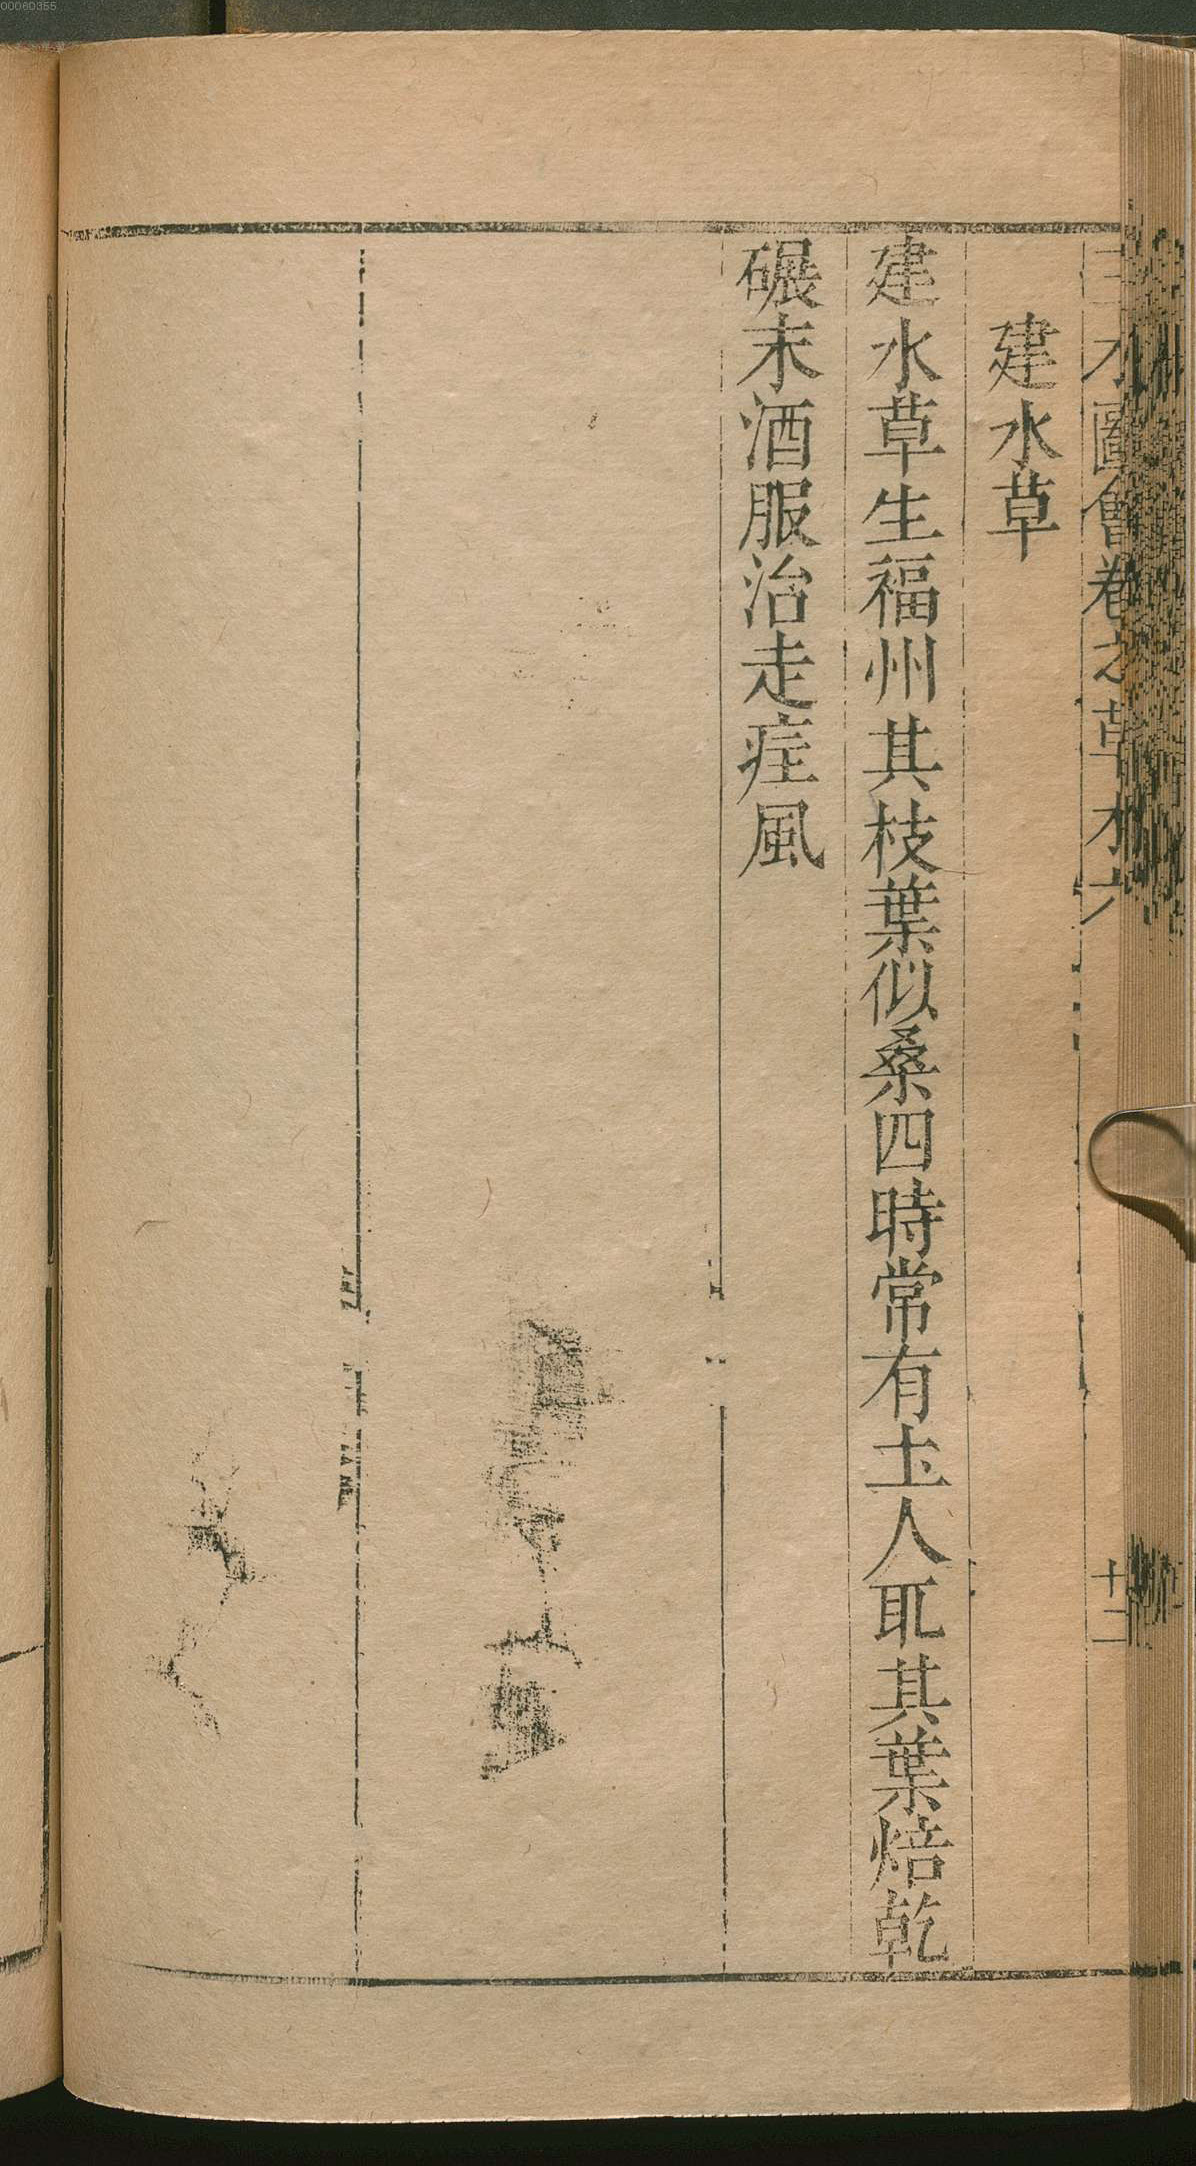 00060355
圖會卷之草木六
十二
建水草
建水草生福州其枝葉似桑四時常有圡人耴其葉焙乾
碾末酒服治走疰風